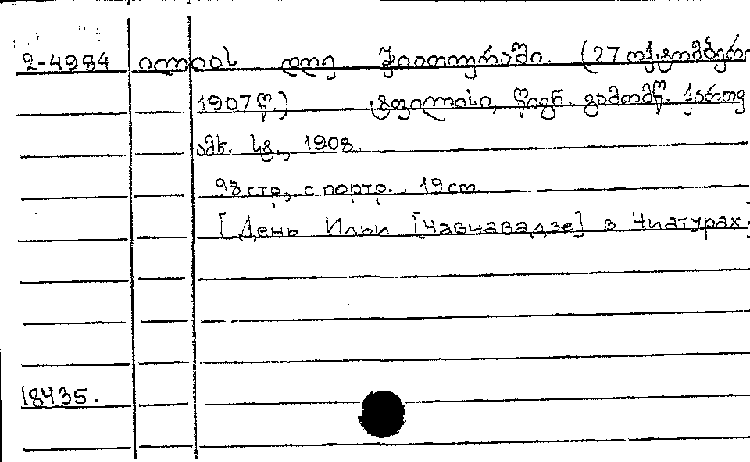 2-4984 ილიას დღე ჭიათურაში. (27 ოქტომბერი
1907 წ.) ტფილისი, წიგნ. გამომც. ქართვ
ამხ. სტ., 1908.
98 стр., с портр. 19 cm
[День Ильи [Чавчавадзе] в Чиатурах.
18435.